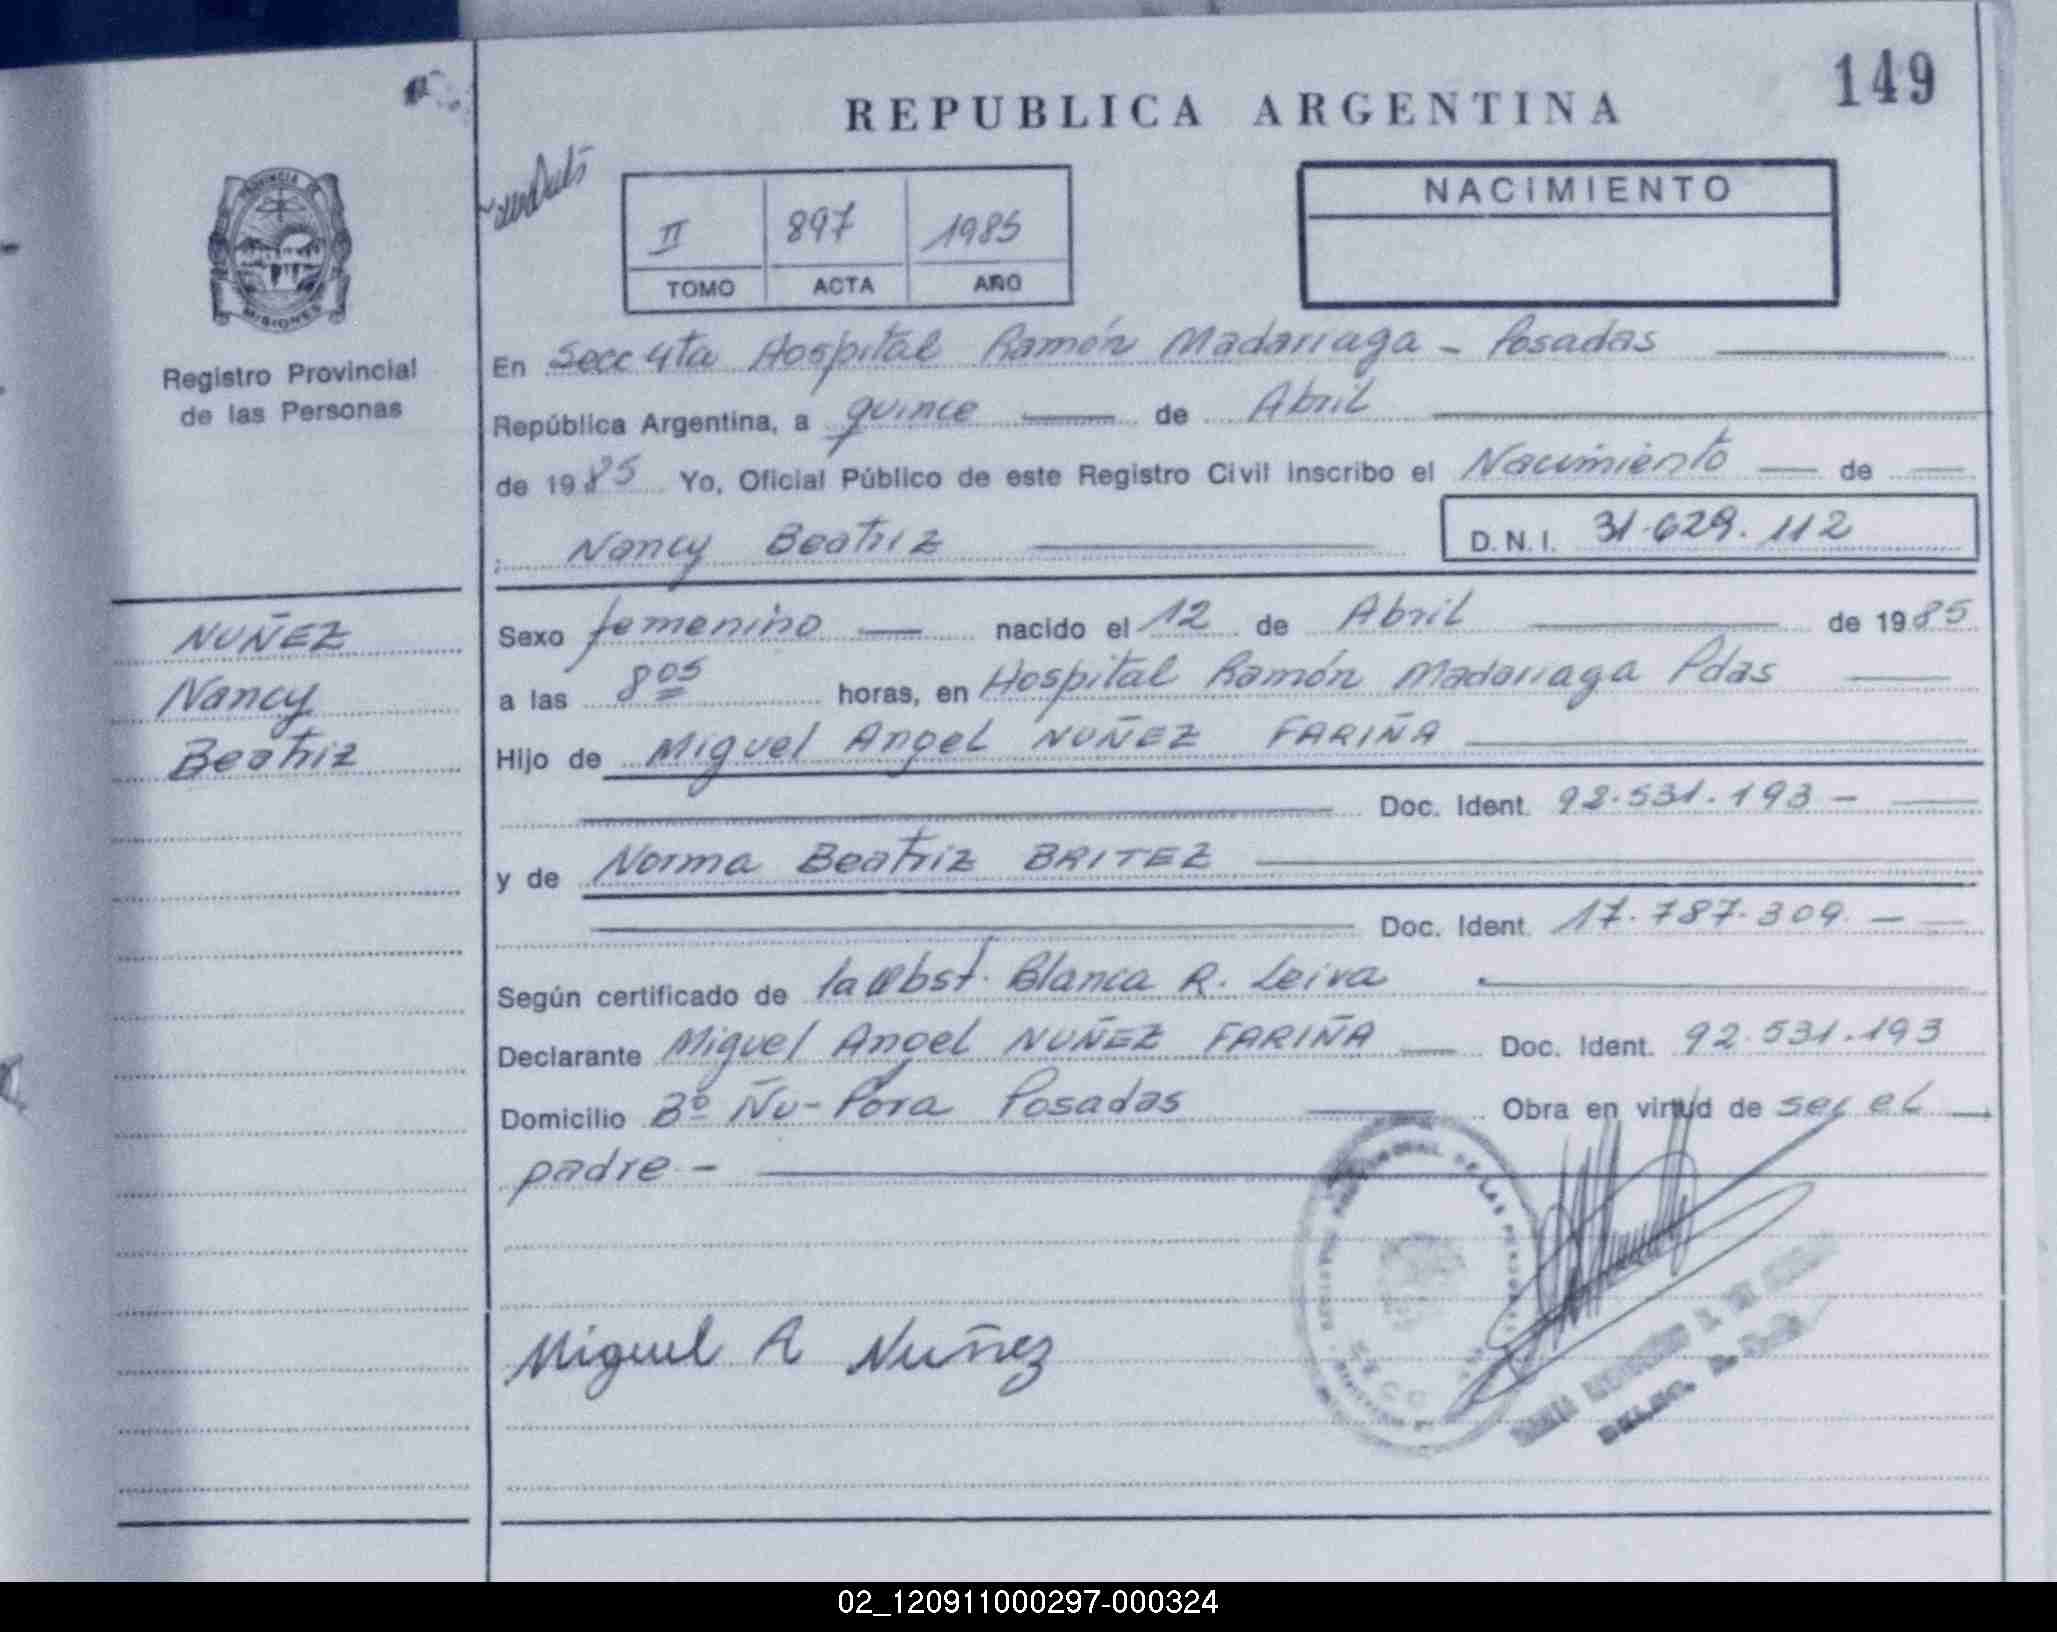 149
REPUBLICA ARGENTINA
PROVINCIA DE
MISIONES
Registro Provincial
de las Personas
II 897 1985
TOMO ACTA AÑO
NACIMIENTO
En Secc 4ta Hospital Ramón Madarriaga - Posadas
República Argentina, a quince de Abril
de 1985 Yo, Oficial Público de este Registro Civil Inscribo el Nacimiento de
Nancy Beatriz D.N.I. 31.629.112
NUÑEZ
Nancy
Beatriz
Sexo femenino nacido el 12 de Abril de 1985
a las 8 05 horas, en Hospital Ramón Madarriaga Pdas
Hijo de Miguel Angel NUÑEZ FARIÑA
Doc. Ident. 92.531.193 -
y de Norma Beatriz BRITEZ
Doc. Ident. 17.787.309 -
Según certificado de la Obst. Blanca R. Leiva
Declarante Miguel Angel NUÑEZ FARIÑA Doc. Ident. 92.531.193
Domicilio Bº Ñu-Pora Posadas Obra en virtud de ser el
padre -
Miguel A Nuñez
02_120911000297-000324